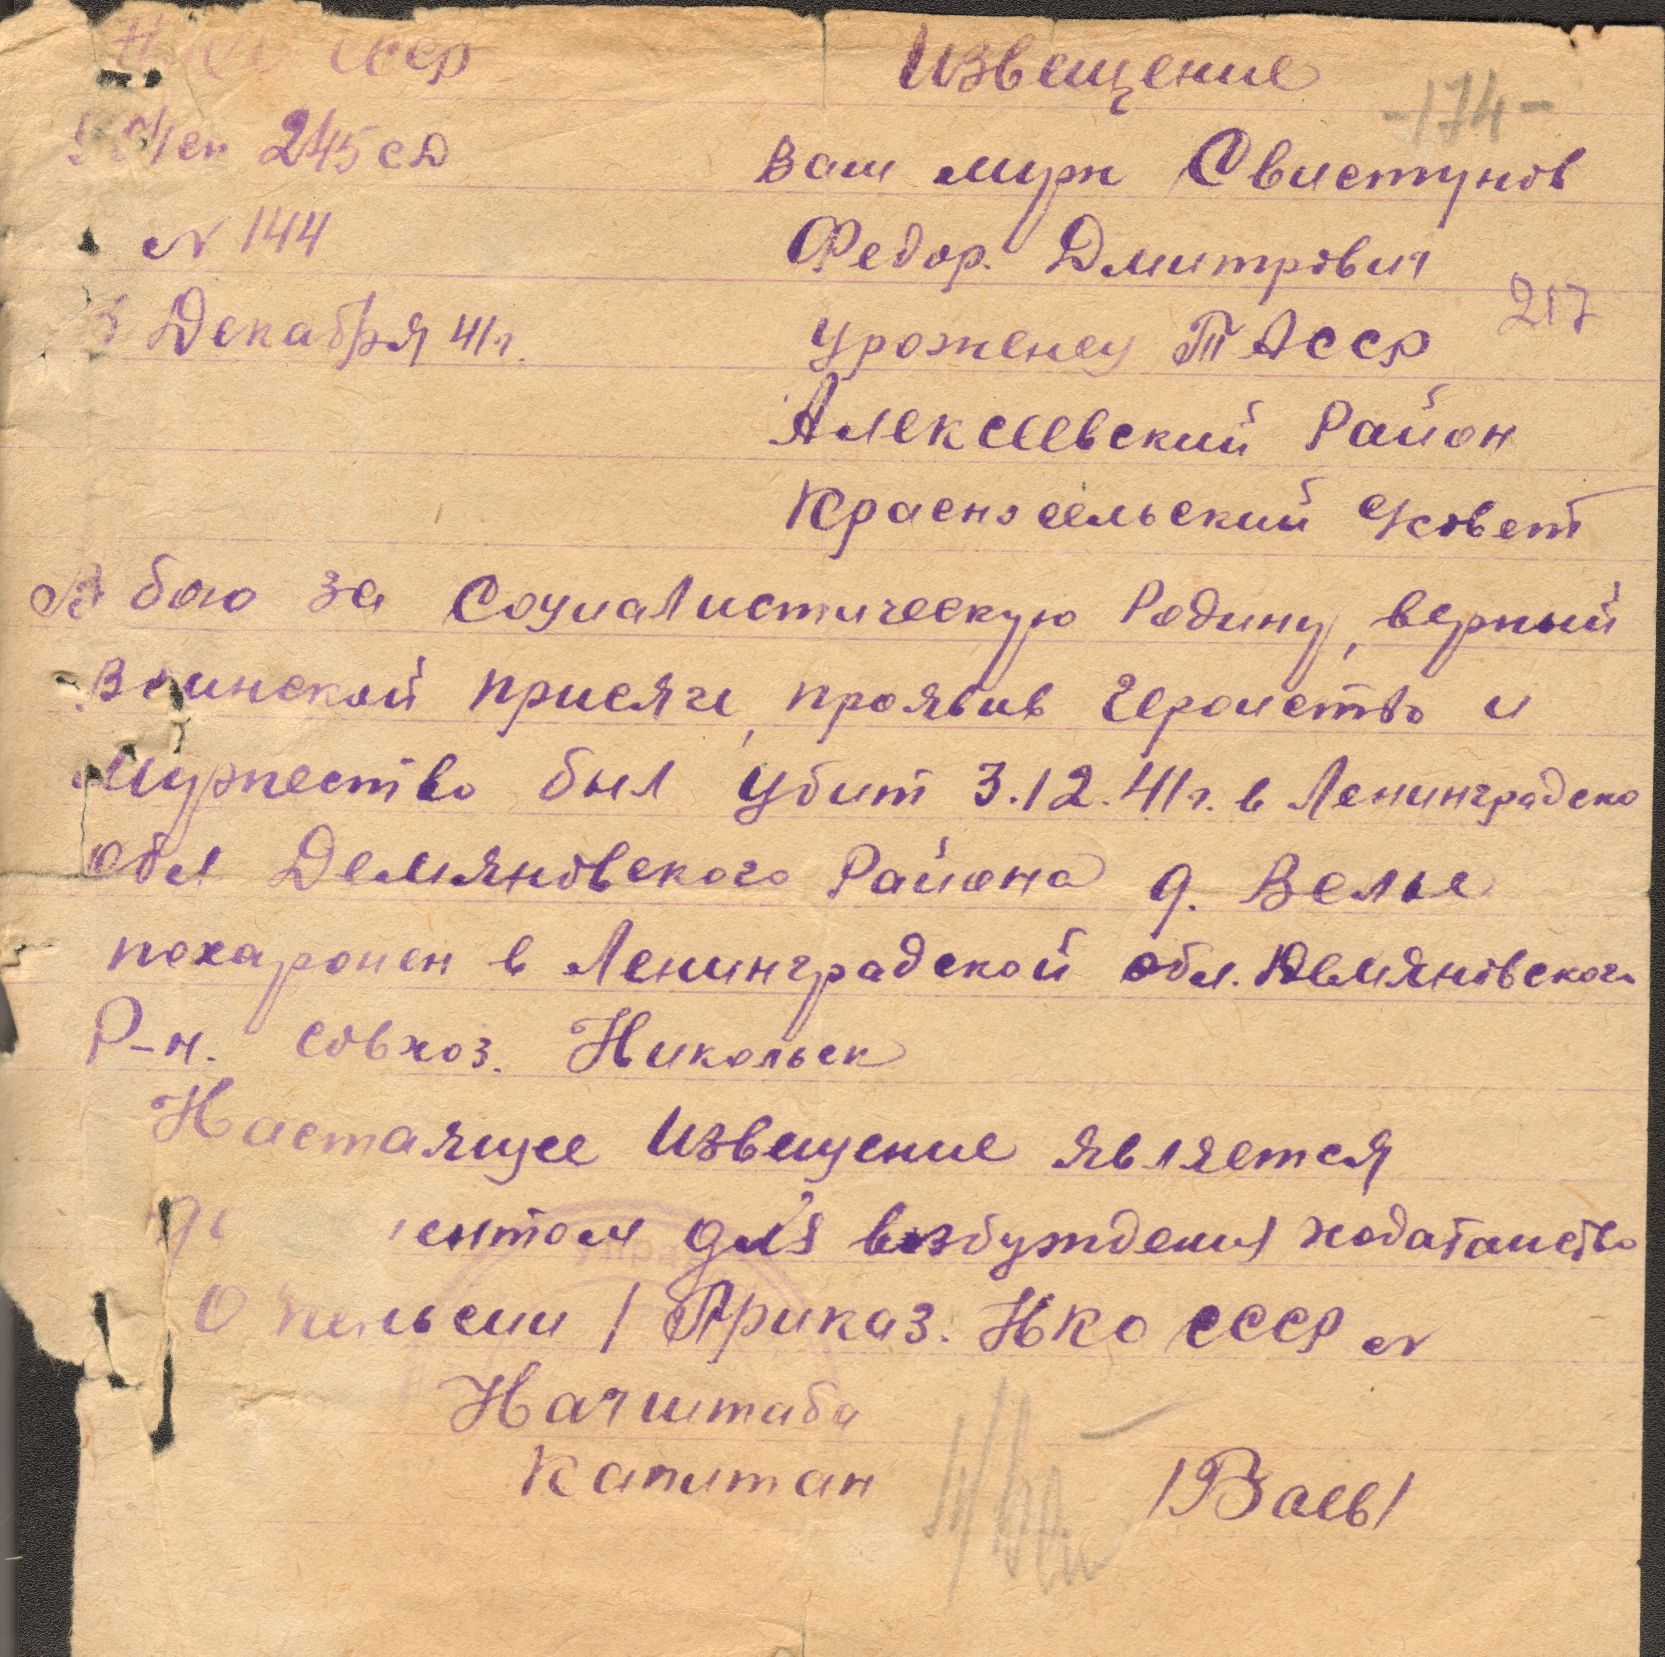 НКО СССР Извещение
-174-
245 сд Ваш мужь Свистунов
N 144 Федор. Дмитрович
217
3 Декабря 41 г. Уроженец ТАССР
Алексеевский Район
Красносельский Совет
В бою за Социалистическую Родину, верный
Воинской присяге, проявив Героиство и
Мужество был Убит 3.12.41 г. в Ленинградско
обл Демяновского Района д. Велье
похаронен в Ленинградской обл. Демяновского
Р-н. совхоз. Никольск
Настаящее Извещение является
ентом для возбуждения ходатаиство
О пенсии / Приказ. НКО СССР N
Начштаба
Капитан /Ваев/